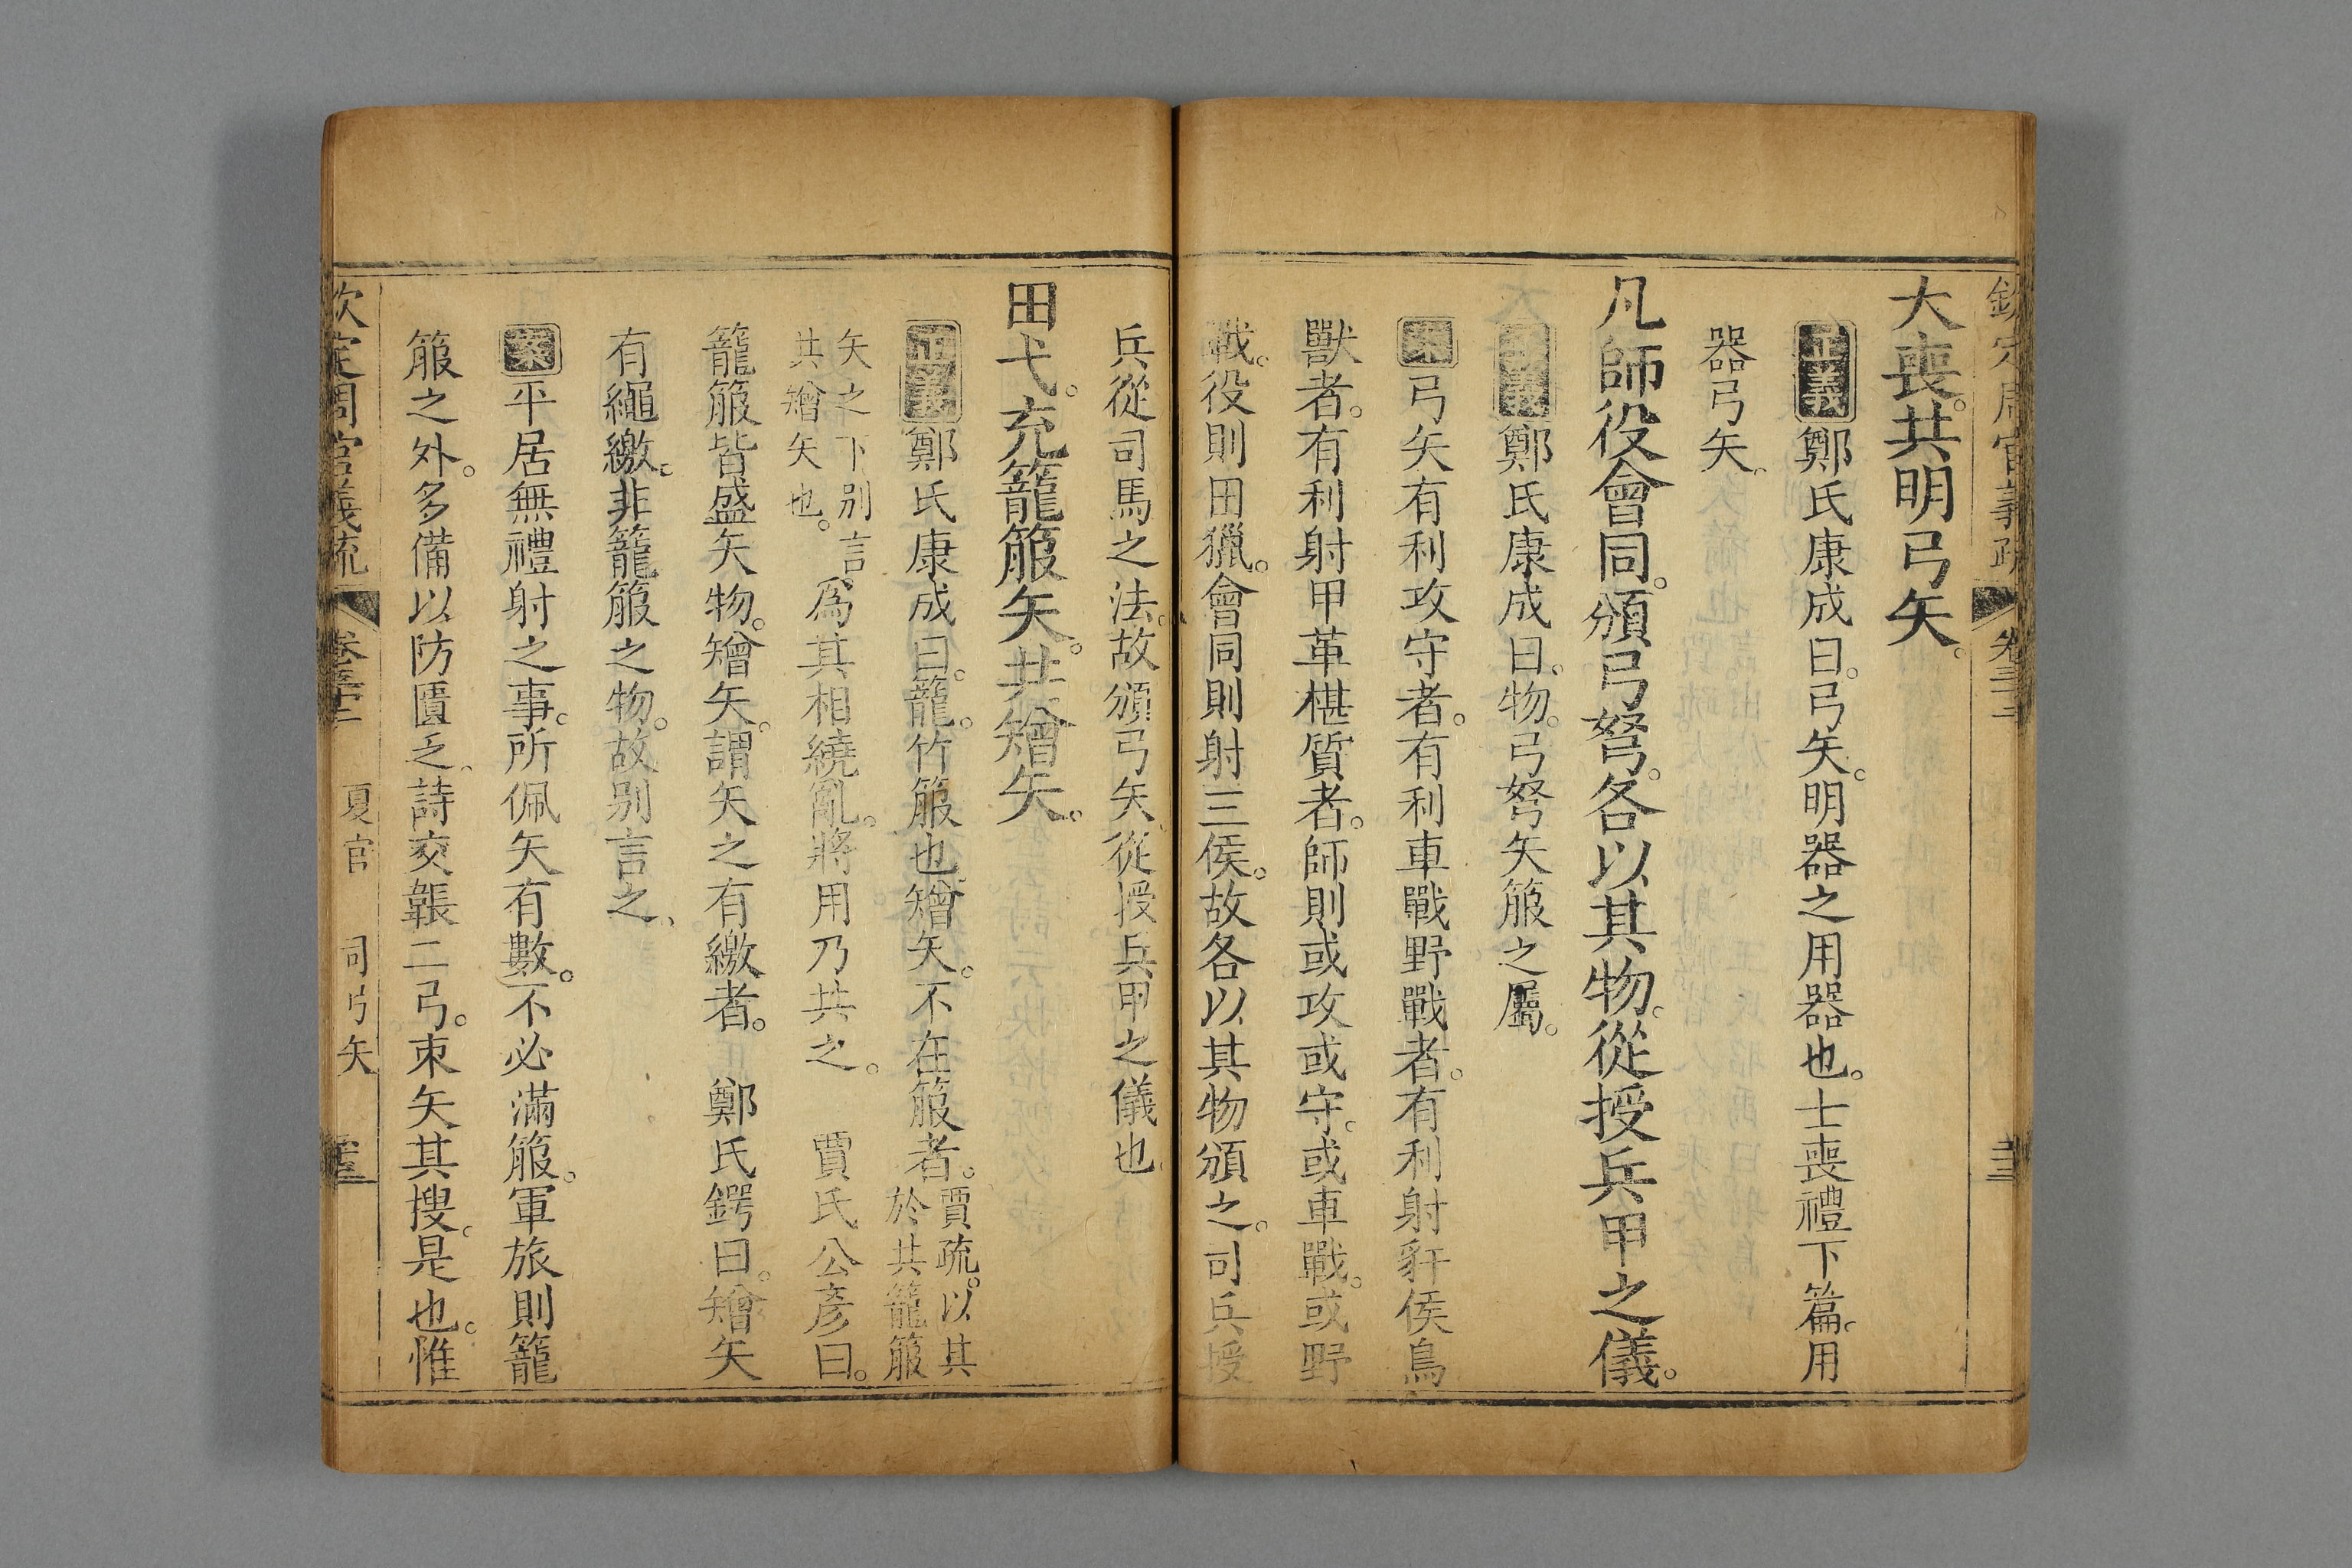 欽定周官義疏 卷三十二
大喪。共明弓矢。
正義鄭氏康成曰。弓矢。明器之用器也。士喪禮下篇。用
器弓矢。
凡師役會同。頒弓弩。各以其物。從授兵甲之儀。
正義鄭氏康成曰。物。弓弩矢箙之屬。
案弓矢有利攻守者。有利車戰野戰者。有利射豻侯鳥
獸者。有利射甲革椹質者。師則或攻或守。或車戰。或野
戰。役則田獵。會同則射三侯。故各以其物頒之。司兵授
兵從司馬之法。故頒弓矢。從授兵甲之儀也。
田弋。充籠箙矢。共矰矢。
正義鄭氏康成曰。籠。竹箙也。矰矢。不在箙者。賈疏。以其於共籠箙
矢之下別言共矰矢也。爲其相繞亂。將用乃共之。 賈氏公彥曰。
籠箙皆盛矢物。矰矢。謂矢之有繳者。 鄭氏鍔曰。矰矢
有繩繳。非籠箙之物。故别言之、
案平居無禮射之事。所佩矢有數。不必滿箙。軍旅則籠
箙之外。多備以防匱乏、詩交韔二弓。束矢其搜。是也。惟
欽定周官義疏 卷三十二 夏官 司弓矢